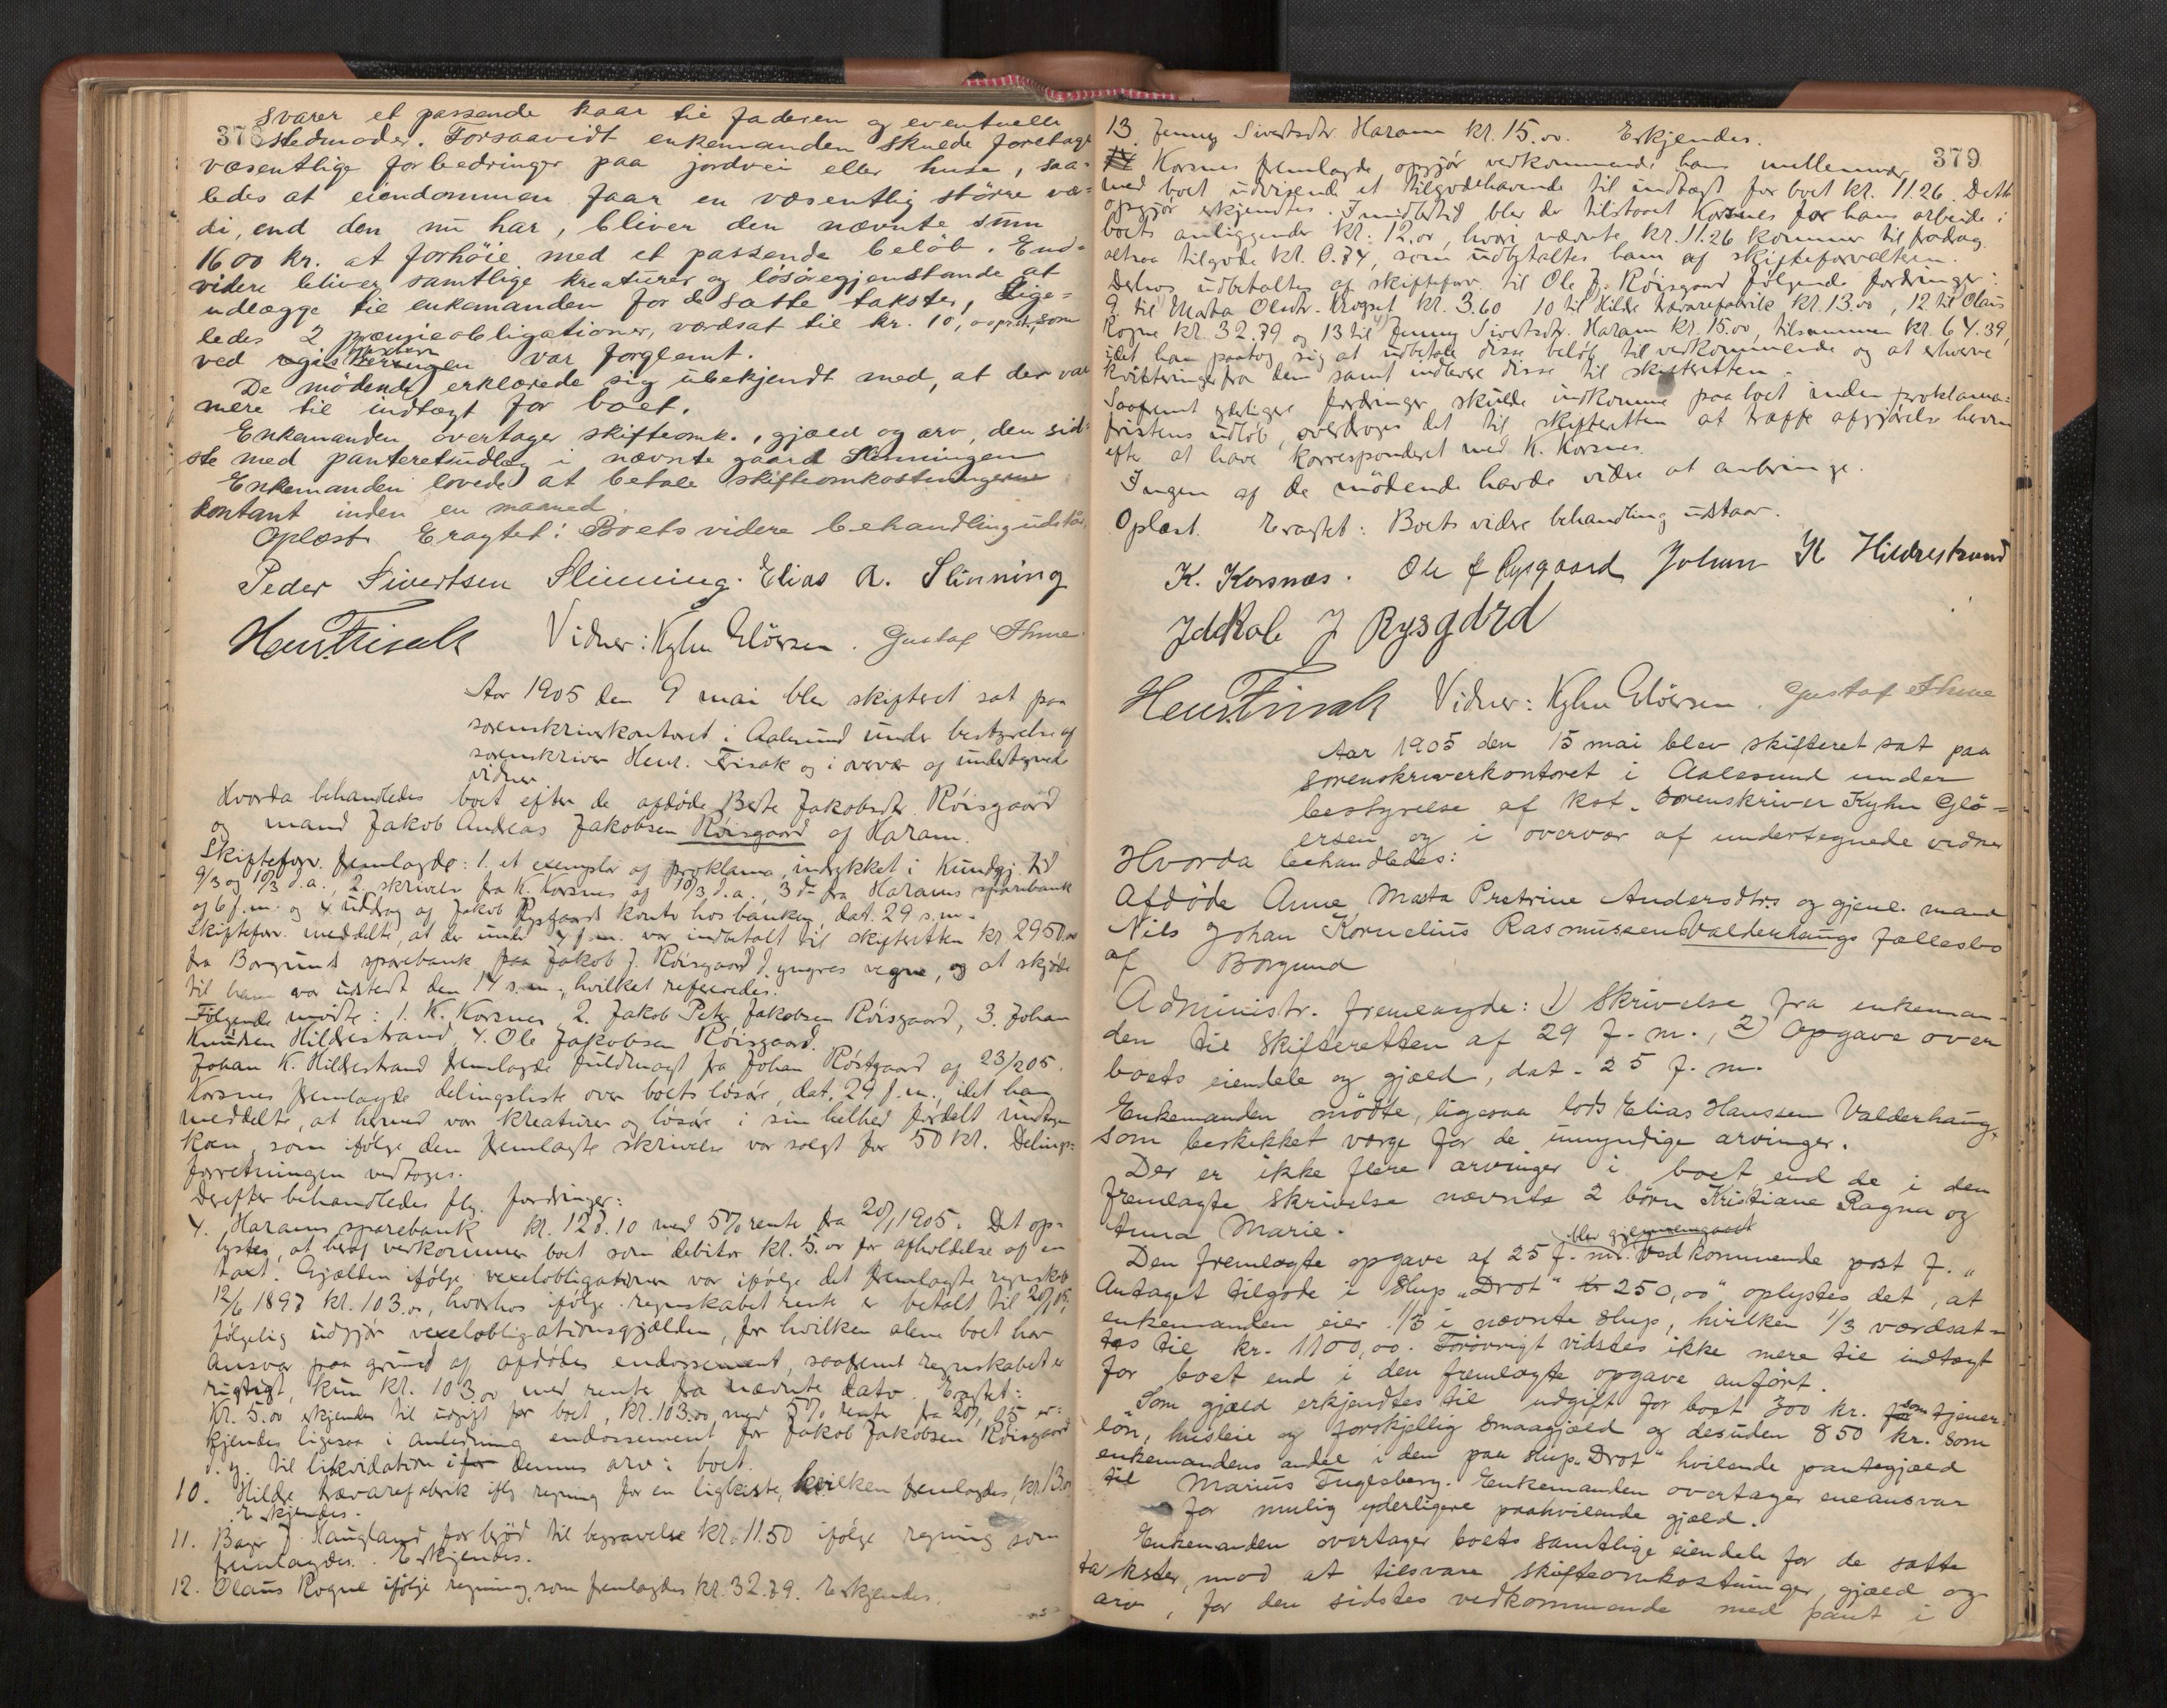 378
svarer et passende kaar til faderen og eventuelle
stedmoder. Forsaavidt enkemanden skulde foretage
væsentlige forbedringer paa jordvei eller huse, saa-
ledes at eiendommen faar en væsentlig större vær-
di, end den nu har, bliver den nævnte sum
1600 kr. at forhöie med et passende belöb. End-
videre bliver samtlige kreaturer og lösöregjenstande at
udlægge til enkemanden for de satte takster, Lige-
ledes 2 præmieobligationer, værdsat til kr. 10,00 pr. stk, som
ved var forglemt.
De mödende erklærede sig ubekjendt med, at der var
mere til indtægt for boet.
Enkemanden overtager skifteomk., gjæld og arv, den sid-
ste med panteretsudlæg i nævnte gaard Slinningen
Enkemanden lovede at betale skifteomkostningerne
kontant inden en maaned
Oplæst Eragtet: Boets videre behandling udstår.
Peder Sivertsen Slinning. Elias A. Slinning
Henr. Frisak Vidner: Kyhn Glöersen. Gustaf Thue
Aar 1905 den 9 mai blev skifteret sat paa
sorenskriverkontoret i Aalesund under bestyrelse af
sorenskriver Henr. Frisak og i overvær af undertegnede
vidner
Hvorda behandledes boet efter de afdöde Berte Jakobsdtr. Röisgaard
og mand Jakob Andreas Jakobsen Röisgaard af Haram.
Skifteforv. fremlagde: 1. et exemplar af proklama, indrykket i Kundgj. tid
9/3 og 10/3 d.a., 2. skrivelse fra K. Korsnes af 10/3 d.a., 3 do fra Harams sparebank
af 6 f.m. og 4. uddrag af Jakob Rysgaards konto hos banken, dat. 29 s.m.
Skifteforv. meddelte, at der under 4 f.m. var indbetalt til skifteretten kr. 2950.00
fra Borgund sparebank paa Jakob J. Röisgaard d. yngres vegne, og at skjöde
til ham var udstedt den 14 s.m., hvilket refereredes.
Fölgende mödte: 1. K. Korsnes, 2. Jakob Peter Jakobsen Röisgaard, 3. Johan
Knudsen Hildrestrand, 4. Ole Jakobsen Röisgaard.
Johan K. Hildrestrand fremlagde fuldmagt fra Johan Röisgaard af 23/2 05.
Korsnes fremlagde delingsliste over boets lösöre, dat. 29 f.m., idet han
meddelte, at hermed var kreaturer og lösöre i sin helhed fordelt undtagen
koen, som ifölge den fremlagte skrivelse var solgt for 50 kr. Delings-
forretningen vedtoges.
Derefter behandledes flg. fordringer:
4. Harams sparebank kr. 128.10 med 5% rente fra 20/1 1905. Det op-
lystes, at heraf vedkommer boet som debitor kr. 5.00 for afholdelse af en
taxt. Gjælden ifölge vexelobligationen var ifölge det fremlagte regnskab
12/6 1897 kr. 103.00, hvorhos ifölge regnskabet rente er betalt til 20/1 05,
fölgelig udgjör vexelobligationsgjælden, for hvilken alene boet har
ansvar paa grund af afdödes endossement, saafremt regnskabet er
rigtigt, kun kr. 103.00 med rente fra nævnte dato. Eragtet:
Kr. 5.00 erkjendes til udgift for boet, kr. 103.00 med 5% rente fra 20/1 05 er-
kjendes ligesaa i anledning endossement for Jakob Jakobsen Röisgaard
d. y. til likvidation i dennes arv i boet.
10. Hilde trævarefabrik iflg regning for en ligkiste, hvilken fremlagdes, kr. 13.00
Erkjendes.
11. Bager J. Haugland for bröd til begravelse kr. 11.50 ifölge regning som
fremlagdes. Erkjendes.
12. Olaus Rogne ifölge regning, som fremlagdes kr. 32.79. Erkjendes.
379
13. Jenny Sivertsdtr. Haram kr. 15.00. Erkjendes.
Korsnes fremlagde opgjör vedkommende hans mellemvær
med boet udvisende et tilgodehavende til indtægt for boet kr. 11.26. Dette
opgjör erkjendtes. Imidlertid blev der tilstaaet Korsnes for hans arbeide i
boets anliggender kr. 12.00, hvori nævnte kr. 11.26 kommer til fradrag,
altsaa tilgode kr. 0.74, som udbetaltes ham af skifteforvalteren.
Derhos udbetaltes af skifteforv. til Ole J. Röisgaard fölgende fordringer:
9 til Marta Olsdtr. kr. 3.60 10 til Hilde trævarefabrik kr. 13.00, 12 til Olaus
Rogne kr. 32.79 og 13 til Jenny Sivertsdtr. Haram kr. 15.00, tilsammen kr. 64.39,
idet han paatog sig at udbetale disse belöb til vedkommende og at erhverve
kvitteringer fra dem samt indlevere disse til skifteretten.
Saafremt yderligere fordringer skulde indkomme paa boet inden proklama-
fristens udlöb, overdroges det til skifteretten at træffe afgjörelse herom
efter at have korresponderet med K. Korsnes.
Ingen af de mödende havde videre at anbringe.
Oplæst. Eragtet: Boets videre behandling udstaar.
K. Korsnæs. Ole J Rysgaard Johan K Hildrestrand
Jakob J Rysgård
Henr. Frisak Vidner: Kyhn Glöersen. Gustaf Thue
Aar 1905 den 15 mai blev skifteret sat paa
sorenskriverkontoret i Aalesund under
bestyrelse af kst. sorenskriver Kyhn Glö-
ersen og i overvær af undertegnede vidner
Hvorda behandledes:
Afdöde Anne Marta Pretrine Andersdtrs og gjenl. mand
Nils Johan Kornelius Rasmussen Valderhaugs fællesbo
af Borgund
Administr. fremlagde: 1) Skrivelse fra enkeman-
den til skifteretten af 29 f.m., 2) Opgave over
boets eiendele og gjæld, dat. 25 f.m.
Enkemanden mödte, ligesaa lods Elias Hanssen Valderhaug,
som beskikket værge for de umyndige arvinger.
Der er ikke flere arvinger i boet, end de i den
fremlagte skrivelse nævnte 2 börn Kristiane Ragna og
Anna Marie.
blev gjennemgaaet
Den fremlagte opgave af 25 f.m. Vedkommende post 7. "
Antaget tilgode i Slup "Drot" kr 250,00" oplystes det, at
enkemanden eier 1/3 i nævnte slup, hvilken 1/3 værdsat-
tes til kr. 1100,00. Forövrigt vidstes ikke mere til indtægt
for boet end i den fremlagte opgave anfört.
Som gjæld erkjendtes til udgift for boet 300 kr. som tjener-
lön, husleie og forskjellig smaagjæld og desuden 850 kr. som
enkemandens andel i den paa Slup "Drot" hvilende pantegjæld
til Marius Fuglsberg. Enkemanden overtager eneansvar
for mulig yderligere paahvilende gjæld.
Enkemanden overtager boets samtlige eiendele for de satte
takster, mod at tilsvare skifteomkostninger, gjæld og
arv, for den sidstes vedkommende med pant i